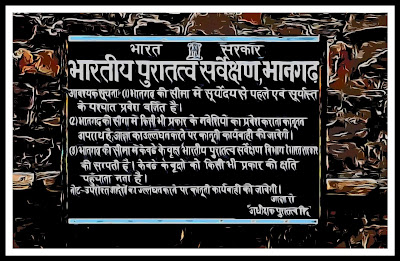 भारत सरकार
भारतीय पुरातत्व सर्वेक्षण, भानगढ़
आवश्यक सूचना:- (1) भानगढ़ की सीमा में सूर्योदय से पहले एवं सूर्यास्त
के पश्चात प्रवेश वर्जित है।
(2) भानगढ़ की सीमा में किसी भी प्रकार के मवेशियों का प्रवेश कराना कानूनन
अपराध है, आज्ञा का उल्लंघन करने पर कानूनी कार्यवाही की जावेगी।
(3) भानगढ़ की सीमा में केवडे के वृक्ष भारतीय पुरातत्व सर्वेक्षण विभाग भारत सरकार
की सम्पती है। केवडे के वृक्षों को किसी भी प्रकार की क्षति
पहुंचाना मना है।
नोट- उपरोक्त आदेशों का उल्लंघन करने पर कानूनी कार्यवाही की जावेगी।
आज्ञा से